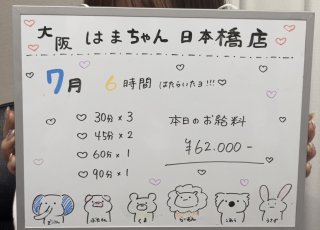 大阪 はまちゃん 日本橋店
7月 6時間 はたらいたョ!!!
30分×3
45分×2
60分×1
90分×1
本日のお給料
¥62.000-
ぞうさん ぶたさん くま らいおん こあら うさぎ